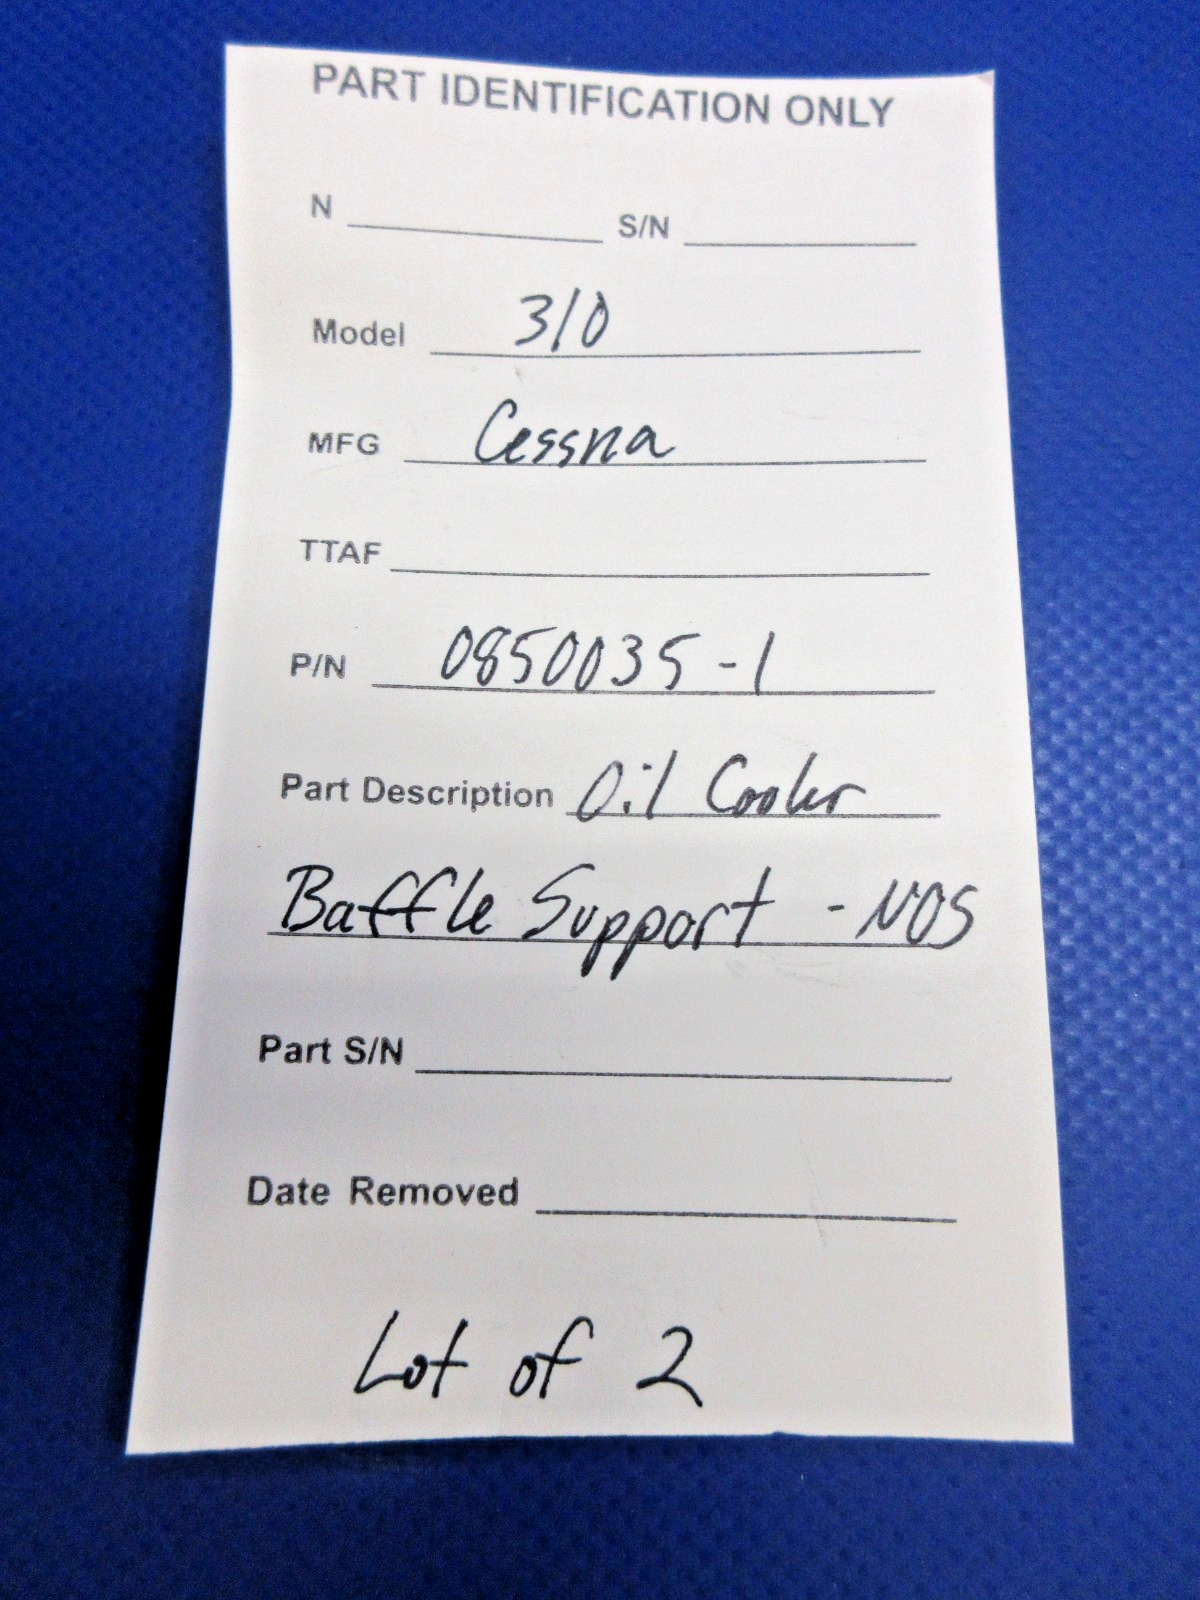 PART IDENTIFICATION ONLY
N S/N
Model 310
MFG Cessna
TTAF
P/N 0850035-1
Part Description Oil Cooler
Baffle Support - NOS
Part S/N
Date Removed
Lot of 2